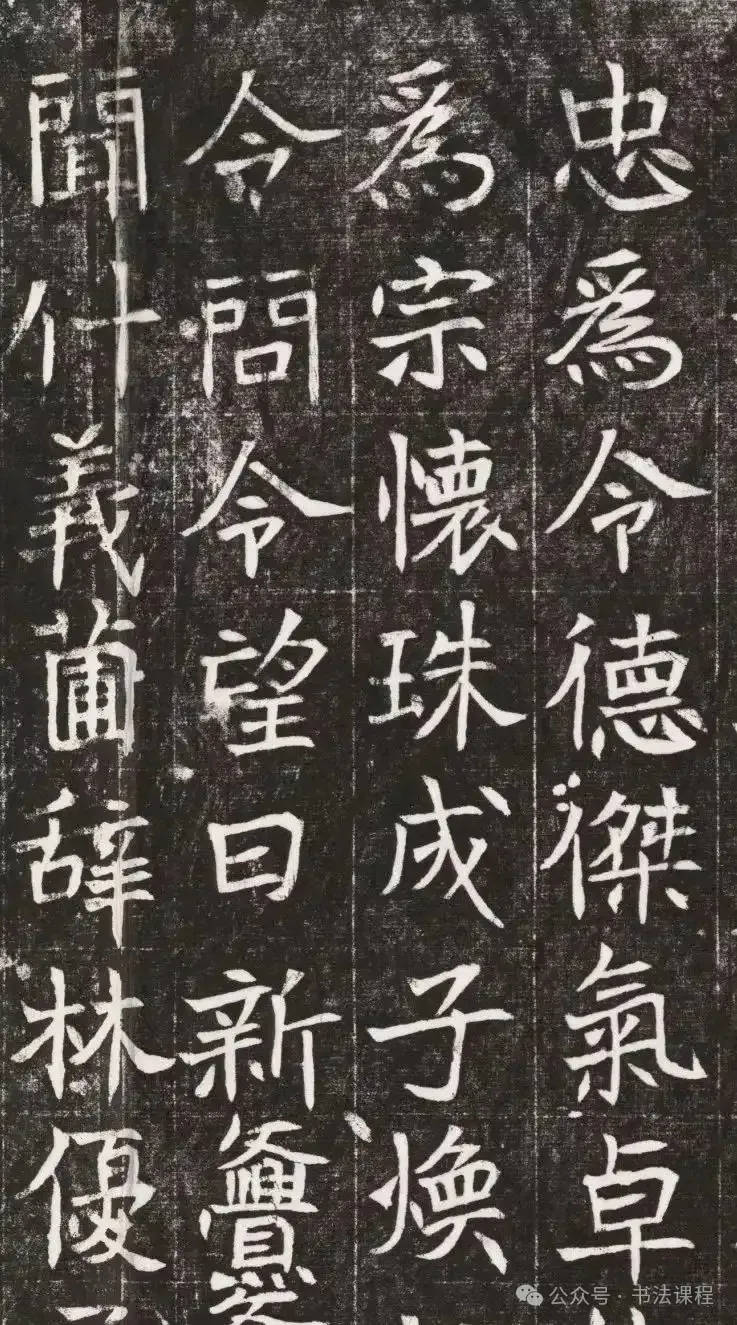 忠爲令德傑氣卓
爲宗懷珠成子煥
令問令望日新亹
聞什義圃辭林優
公众号·书法课程